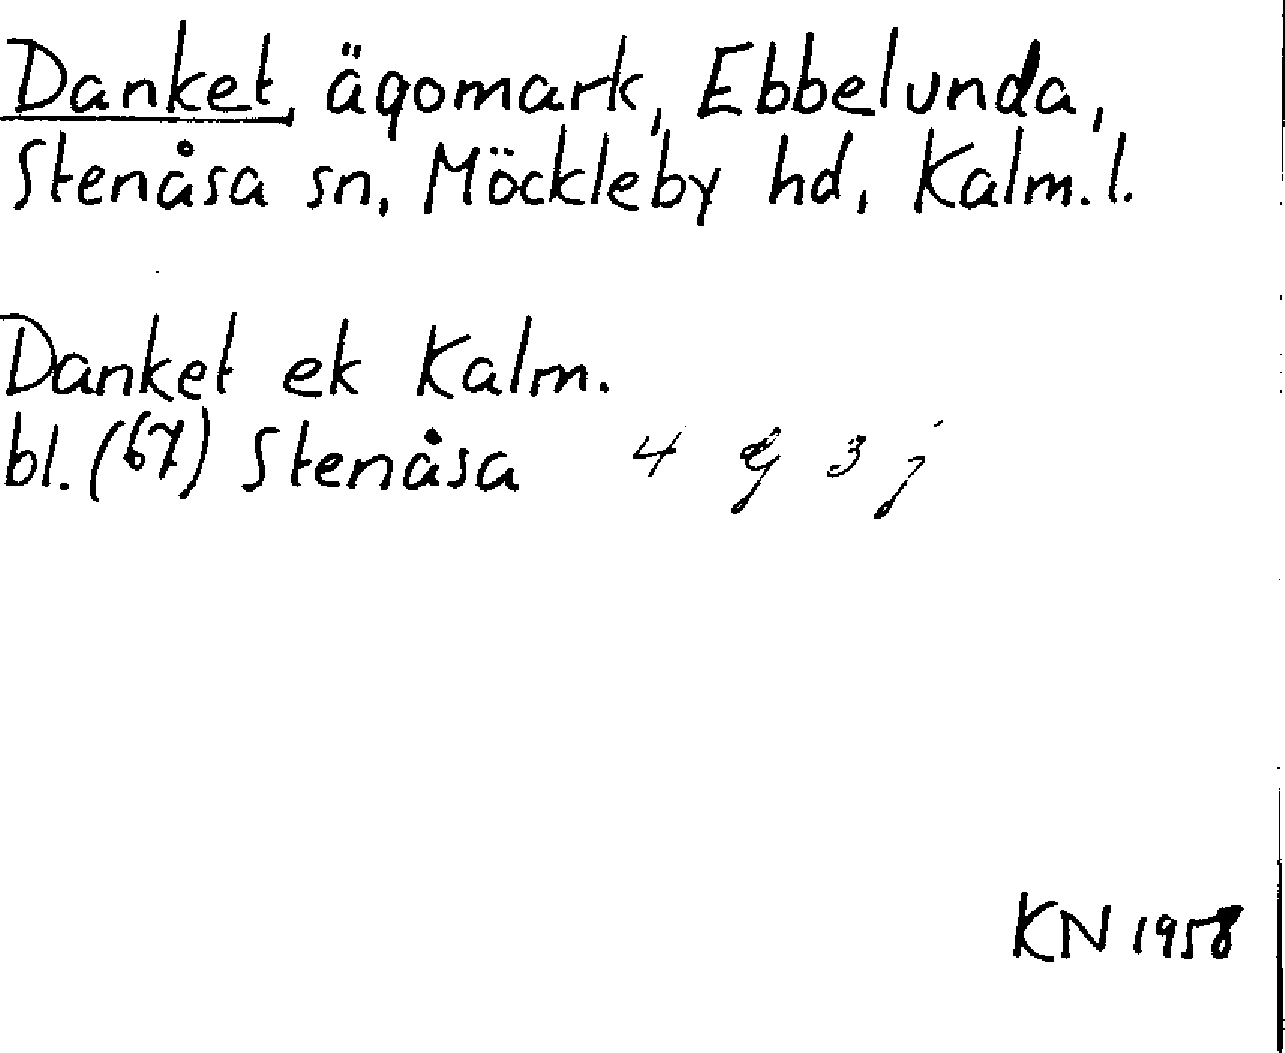 Danket, ägomark, Ebbelunda,
Stenåsa sn, Möckleby hd, Kalm. l.
Danket ek Kalm.
bl. (67) Stenåsa 4 g 3 j
KN 1958